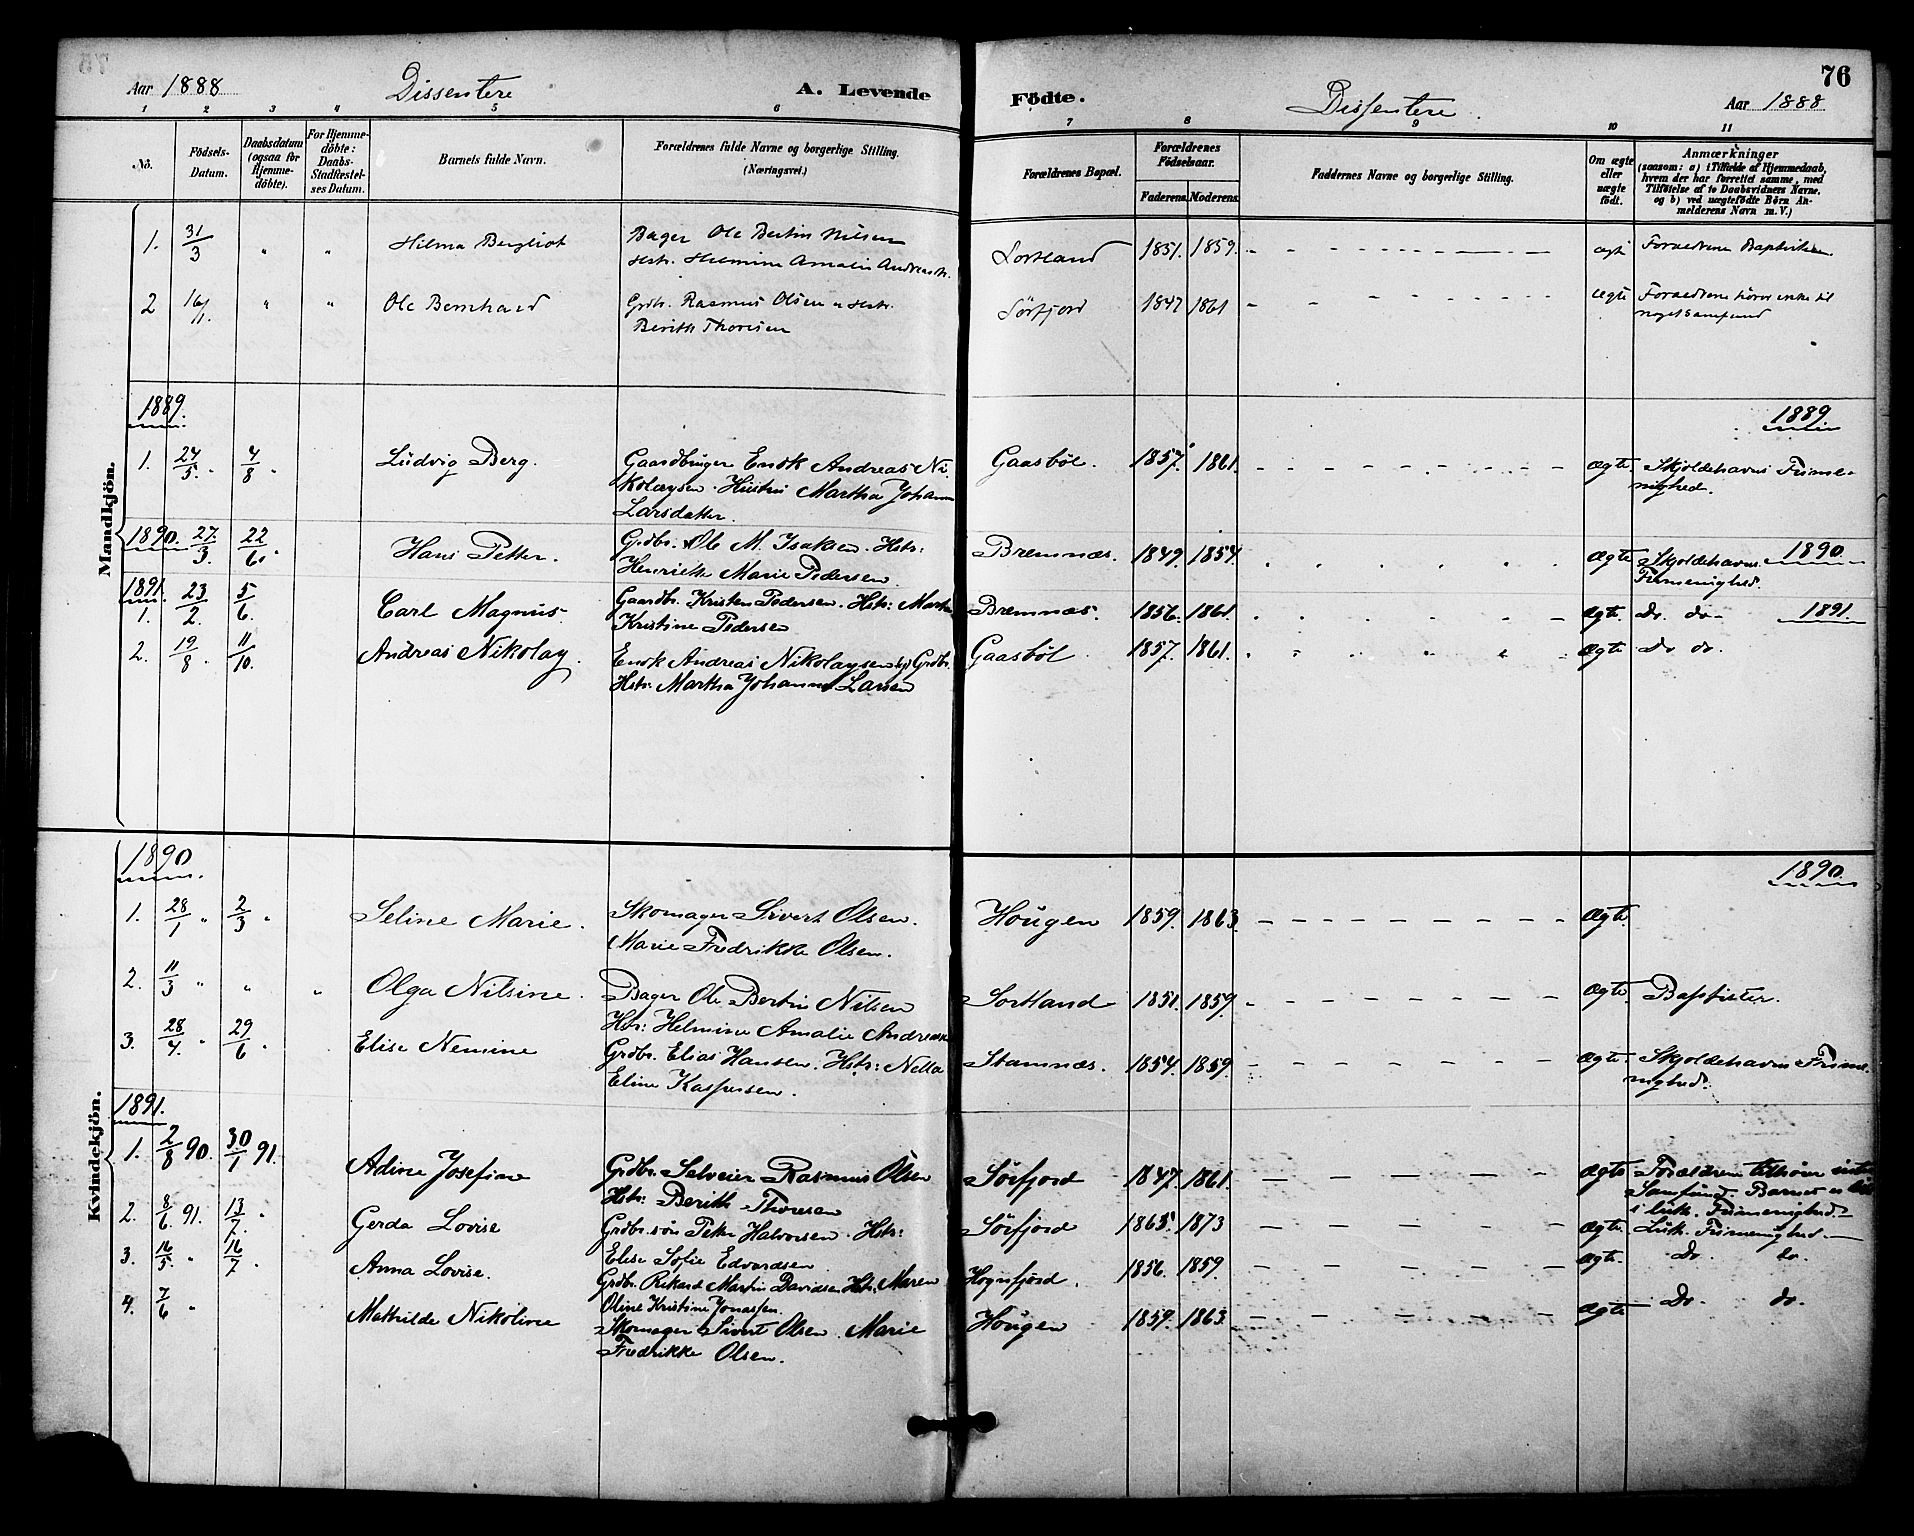 Aar 1888 Dissentere A. Levende
1 2 3 4 5 6
Nö.
Födsels-
Datum.
Daabsdatum
(ogsaa for
Hjemme-
döbte).
For Hjemme-
döbte:
Daabs-
Stadfæstel-
ses Datum.
Barnets fulde Navn.
Forældrenes fulde Navne og borgerlige Stilling.
(Næringsvei.)
Mandkjön.
1. 31/3 " " Hilma Bergliot Bager Ole Bertin Nilsen
Hstr. Helmine Amalie Andreasdtr.
2 16/11. " " Ole Bernhard Grdb. Rasmus Olsen o Hstr.
Berith Thoresen
1889.
1. 24/5. 4/8. Ludvig Berg. Gaardbruger Enok Andreas Ni
kolaysen. Hustru Martha Johanne
Larsdatter.
1890. 27/3. 22/6. Hans Petter. Grdbr. Ole M. Isaksen. Hstr:
Henriette Marie Pedersen.
1891.
1. 23/2. 5/6. Carl Magnus. Gaardb. Kristen Pedersen. Hstr: Martha
Kristine Pedersen
2. 19/8. 11/10. Andreas Nikolay. Enok Andreas Nikolaysen Grdbr.
Hstr: Martha Johanne Larsen
Kvindekjön.
1890
1. 28/1 " 2/3 " Seline Marie. Skomager Sivert Olsen.
Marie Fredrikke Olsen.
2. 11/3 " " " Olga Nilsine. Bager Ole Bertin Nilsen
Hstr: Helmine Amalie Andreasen
3. 28/4. " 29/6. Elise Nemine Grdbr. Elias Hansen. Hstr: Nella
Eline Kaspersen.
1891.
1. 2/8 90. 30/1 91. Adine Josefine Grdbr. Selveier Rasmus Olsen
Hstr: Berith Thoresen
2. 8/6. 91. 13/7. " Gerda Lovise Grdbr.sön Peter Halvorsen. Hstr:
Elise Sofie Edvardsen.
3. 16/5. " 16/7. Anna Lovise. Grdbr. Rikard Martin Davidsen. Hstr: Maren
Oline Kristine Jonassen.
4. 7/6 " Mathilde Nikoline Skomager Sivert Olsen. Marie
Fredrikke Olsen.
76
Födte. Dissentere. Aar 1888
7 8 9 10 11
Forældrenes Bopæl.
Forældrenes
Födselsaar.
Faderens. Moderens.
Faddernes Navne og borgerlige Stilling.
Om ægte
eller
uægte
födt.
Anmærkninger
(saasom: a) i Tilfælde af Hjemmedaab,
hvem der har forrettet samme, med
Tilföielse af to Daabsvidners Navne,
og b) ved uægtefödte Börn An-
melderens Navn m. V.)
Sortland 1851. 1859. ægte Forældrene Baptister.
Sörfjord 1847 1861 ægte Forældrene hörer ikke til
noget samfund
1889
Gaasböl. 1857. 1861. ægte. Skjoldehavns Frime-
nighed.
Bremnæs. 1849. 1854. Ægte Skjoldehavns 1890.
Frimenighed.
Bremnæs. 1856. 1861. ægte. Do. do. 1891.
Gaasböl. 1857. 1861. ægte Do do.
1890.
Hougen 1859. 1863. ægte.
Sortland 1851. 1859. ægte. Baptister.
Stamnæs. 1854. 1859. ægte. Skjoldehavns Frime-
nighed.
Sörfjord 1847. 1861. ægte Forældrene tilhörer intet
Samfund. Barnet er
i luth. Frimenighed.
Sörfjord 1865. 1873 ægte. Luth. Frimenighed.
Hognfjord. 1856. 1859. ægte. Do. do.
Hougen 1859. 1863. ægte Do. do.